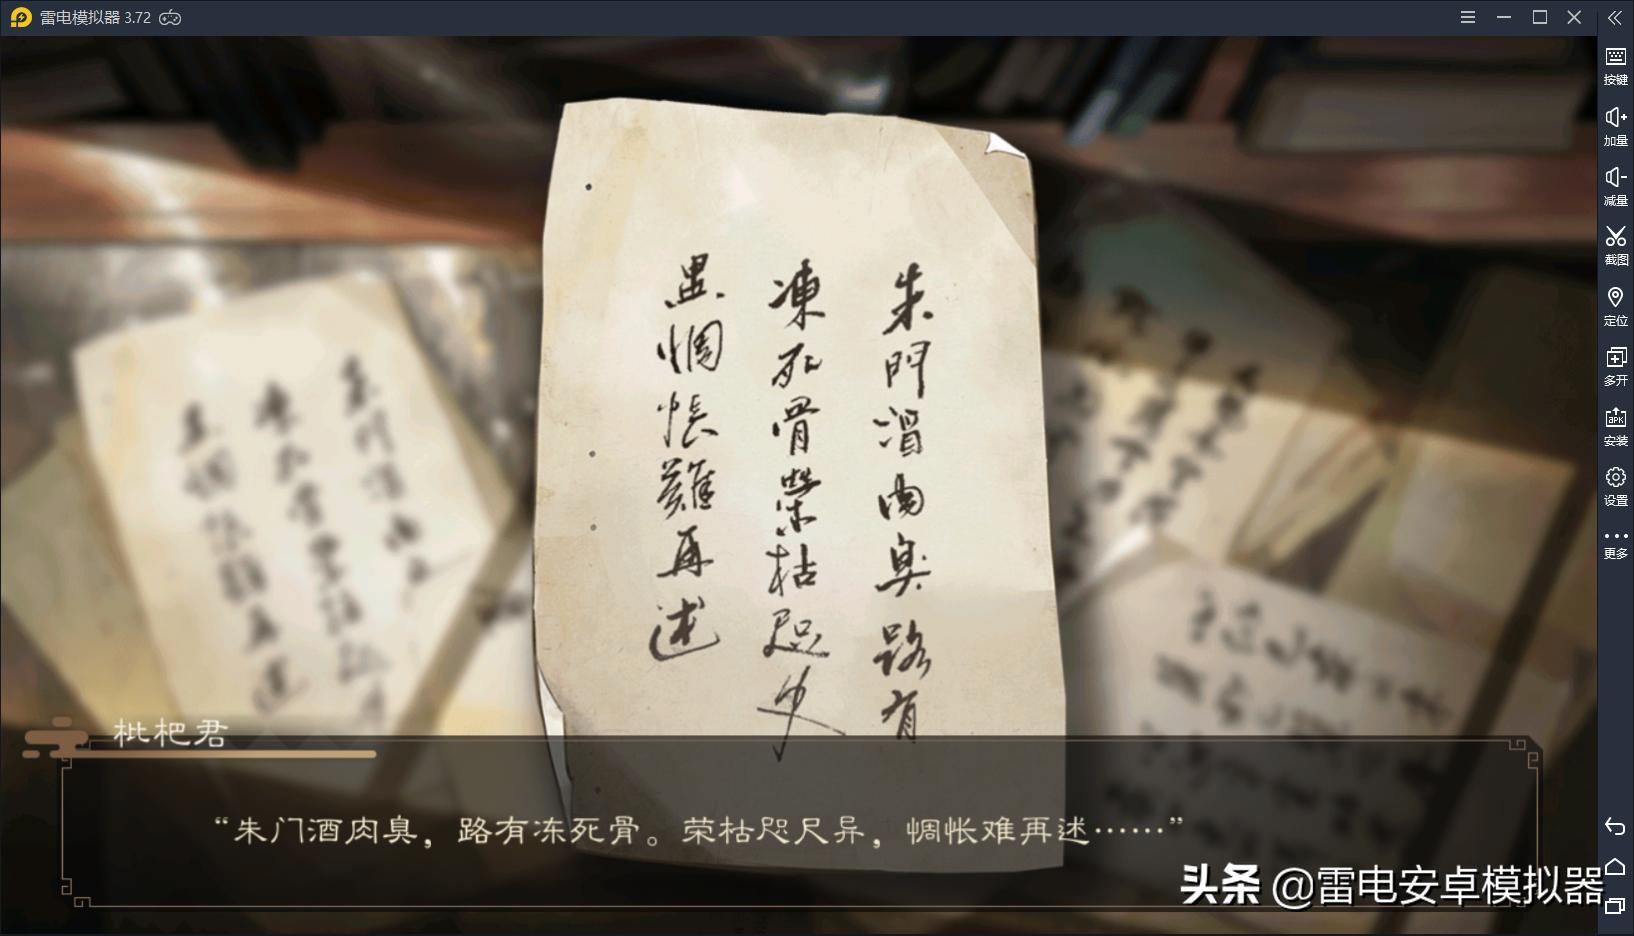 雷电模拟器 3.72
按键
加量
减量
截图
定位
多开
安装
设置
更多
朱門酒肉臭路有
凍死骨榮枯咫尺
異惆悵難再述
枇杷君
“朱门酒肉臭，路有冻死骨。荣枯咫尺异，惆怅难再述……”
头条 @雷电安卓模拟器